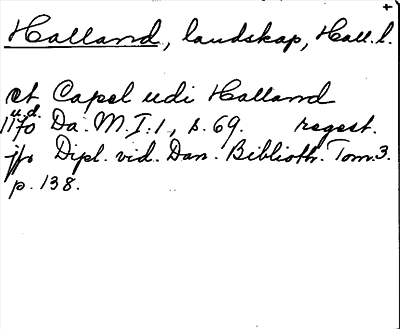 +
Halland, landskap, Hall. l.
et Capel udi Halland
u.d.
1170 Da. M. I. 1, s. 69. regest.
jfr Dipl. vid. Dan. Biblioth. Tom. 3.
p. 138.